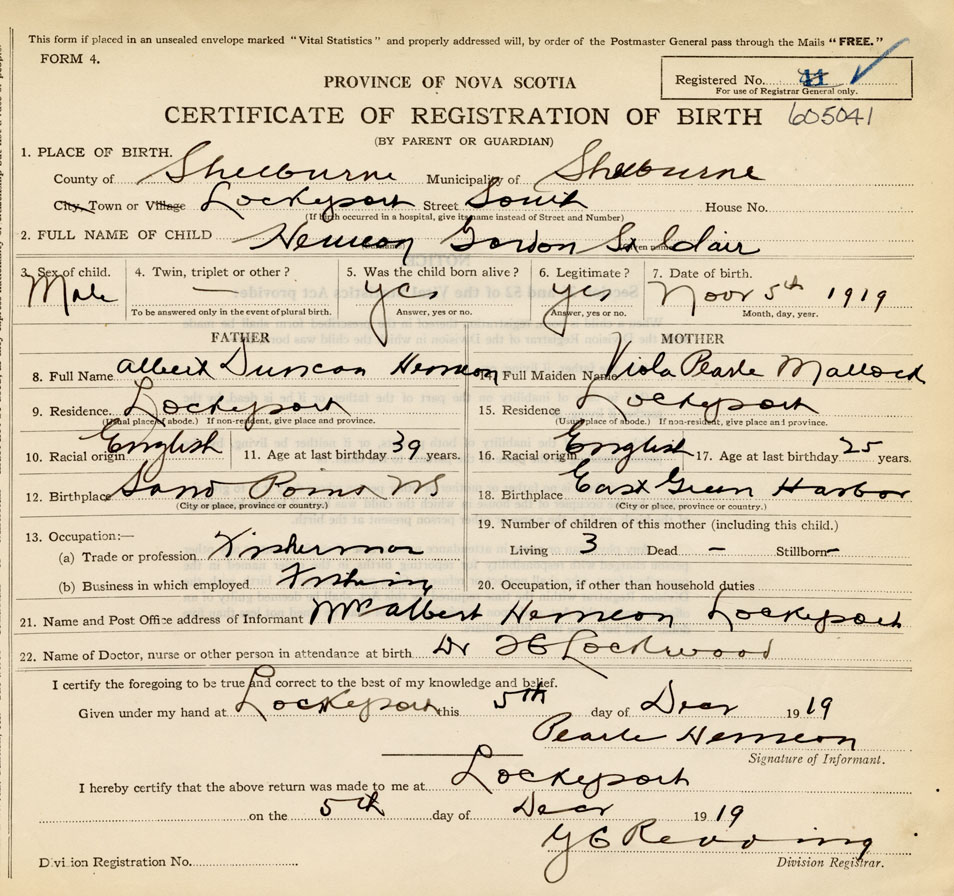 This form if placed in an unsealed envelope marked "Vital Statistics" and properly addressed will, by order of the Postmaster General pass through the Mails "FREE."
FORM 4.
PROVINCE OF NOVA SCOTIA
Registered No. 41
For use of Registrar General only.
CERTIFICATE OF REGISTRATION OF BIRTH 605041
(BY PARENT OR GUARDIAN)
1. PLACE OF BIRTH.
County of Shelburne Municipality of Shelburne
City, Town or Village Lockeport Street South House No.
(If birth occurred in a hospital, give its name instead of Street and Number)
2. FULL NAME OF CHILD Hemeon Gordon St Clair
3. Sex of child. 4. Twin, triplet or other? 5. Was the child born alive? 6. Legitimate? 7. Date of birth.
Male — yes yes Novr 5th 1919
To be answered only in the event of plural birth. Answer, yes or no. Answer, yes or no. Month, day, year.
FATHER MOTHER
8. Full Name Albert Duncan Hemeon 14. Full Maiden Name Viola Pearle Mallock
9. Residence Lockeport 15. Residence Lockeport
(Usual place of abode.) If non-resident, give place and province. (Usual place of abode.) If non-resident, give place and province.
10. Racial origin English 11. Age at last birthday 39 years. 16. Racial origin English 17. Age at last birthday 25 years.
12. Birthplace Sand Point NS 18. Birthplace East Green Harbor
(City or place, province or country.) (City or place, province or country.)
13. Occupation:— 19. Number of children of this mother (including this child.)
(a) Trade or profession Fisherman Living 3 Dead – Stillborn –
(b) Business in which employed Fishing 20. Occupation, if other than household duties
21. Name and Post Office address of Informant Mrs Albert Hemeon Lockeport
22. Name of Doctor, nurse or other person in attendance at birth Dr Lockwood
I certify the foregoing to be true and correct to the best of my knowledge and belief.
Given under my hand at Lockeport this 5th day of Decr 1919
Pearle Hemeon
Signature of Informant.
I hereby certify that the above return was made to me at Lockeport
on the 5th day of Decr 1919
Redding
Division Registrar.
Division Registration No.